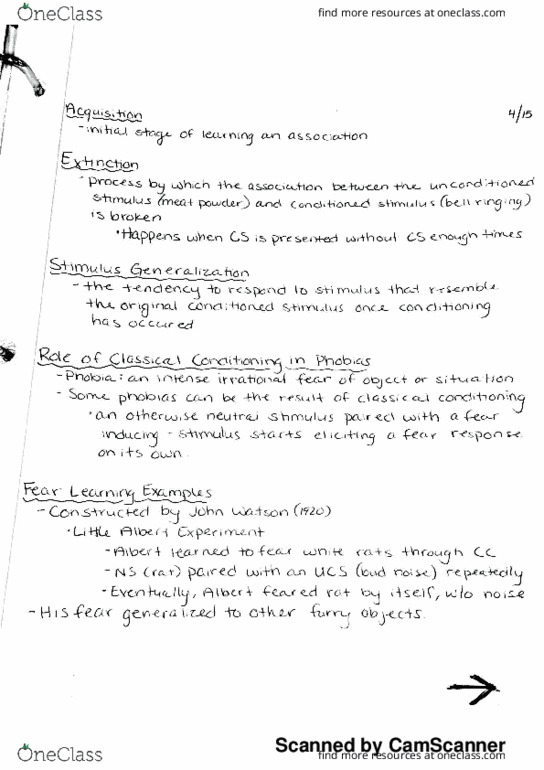 OneClass
find more resources at oneclass.com
4/15
Acquisition
- initial stage of learning an association
Extinction
• process by which the association between the unconditioned
stimulus (meat powder) and conditioned stimulus (bell ringing)
is broken
• Happens when CS is presented without CS enough times
Stimulus Generalization
- the tendency to respond to stimulus that resemble
the original conditioned stimulus once conditioning
has occured
Role of Classical Conditioning in Phobias
- Phobia: an intense irrational fear of object or situation
- Some phobias can be the result of classical conditioning
• an otherwise neutral stimulus paired with a fear
inducing - stimulus starts eliciting a fear response
on its own.
Fear Learning Examples
- Constructed by John Watson (1920)
• Little Albert Experiment
- Albert learned to fear white rats through CC
- NS (rat) paired with an UCS (loud noise) repeatedly
- Eventually, Albert feared rat by itself, w/o noise
- His fear generalized to other furry objects.
Scanned by CamScanner
OneClass
find more resources at oneclass.com